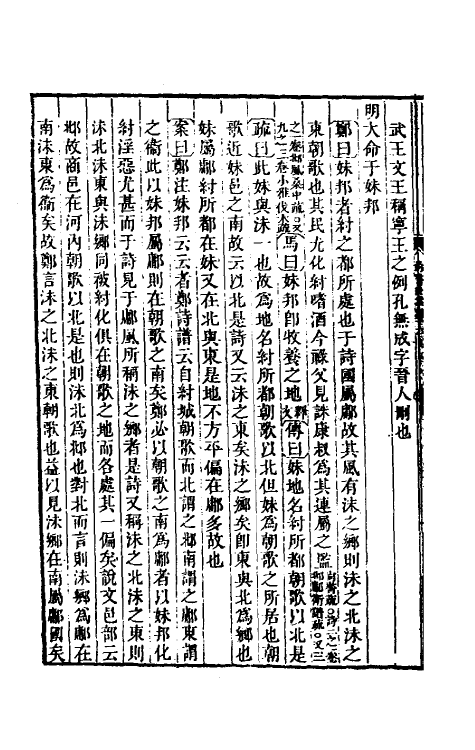 武王文王稱寧王之例孔無成字晉人刪也
明大命于妹邦
鄭曰妹邦者紂之都所處也于詩國屬鄘故其風有沬之鄉則沬之北沬之
東朝歌也其民尤化紂嗜酒今祿父見誅康叔為其連屬之監
之一卷鄘風桑中疏○又
九之三卷小雅伐木疏
馬曰妹邦卽牧養之地釋文傳曰妹地名紂所都朝歌以北是
疏曰此妹與沬一也故為地名紂所都朝歌以北但妹為朝歌之所居也朝
歌近妹邑之南故云以北是詩又云沬之東矣沬之鄉矣卽東與北為鄉也
妹屬鄘紂所都在妹又在北與東是地不方平偏在鄘多故也
案曰鄭注妹邦云云者鄭詩譜云自紂城朝歌而北謂之邶南謂之鄘東謂
之衞此以妹邦屬鄘則在朝歌之南矣鄭必以朝歌之南為鄘者以妹邦化
紂淫惡尤甚而于詩見于鄘風所稱沬之鄉者是詩又稱沬之北沬之東則
沬北沬東與沬鄉同被紂化俱在朝歌之地而各處其一偏矣說文邑部云
邶故商邑在河內朝歌以北是也則沬北為邶也對北而言則沬鄉為鄘在
南沬東為衞矣故鄭言沬之北沬之東朝歌也益以見沬鄉在南屬鄘國矣